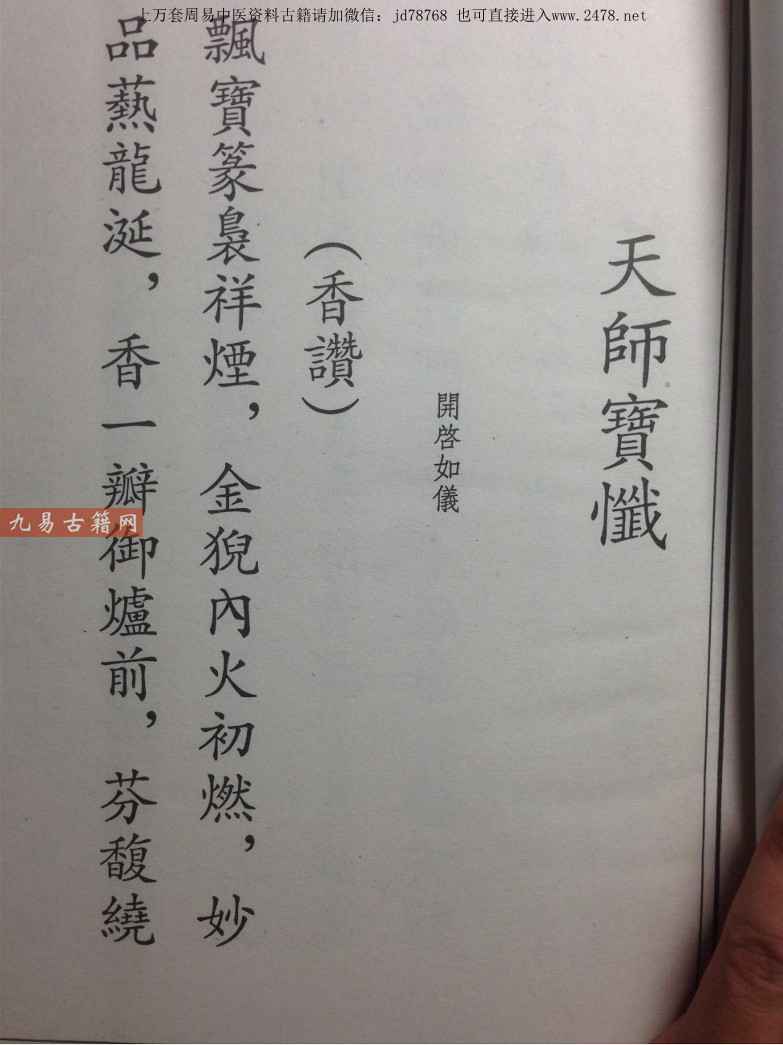 上万套周易中医资料古籍请加微信：jd78768 也可直接进入www.2478.net
天師寶懺
開啓如儀
（香讚）
飄寶篆裊祥煙，金猊內火初燃，妙
品爇龍涎，香一瓣御爐前，芬馥繞
九易古籍网